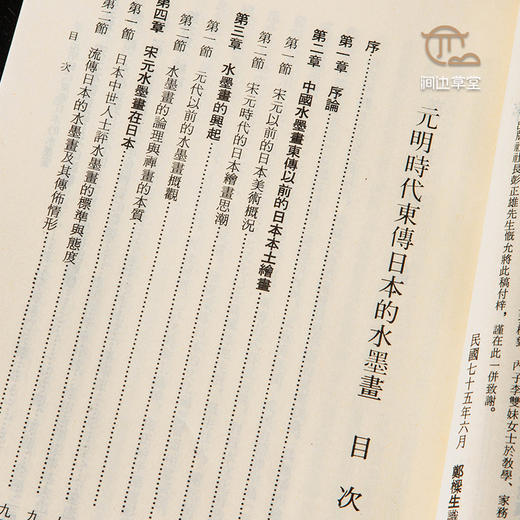 丙子李雙妹女士於教學、家務
社社長彭正雄先生慨允將此稿付梓，謹在此一併致謝。
民國七十五年六月　鄭樑生識
元明時代東傳日本的水墨畫　目次
序
第一章　序論
第二章　中國水墨畫東傳以前的日本本土繪畫
第一節　宋元以前的日本美術概況
第二節　宋元時代的日本繪畫思潮
第三章　水墨畫的興起
第一節　元代以前的水墨畫概觀
第二節　水墨畫的論理與禪畫的本質
第四章　宋元水墨畫在日本
第一節　日本中世人士評水墨畫的標準與態度
第二節　流傳日本的水墨畫及其傳佈情形
目次
草堂